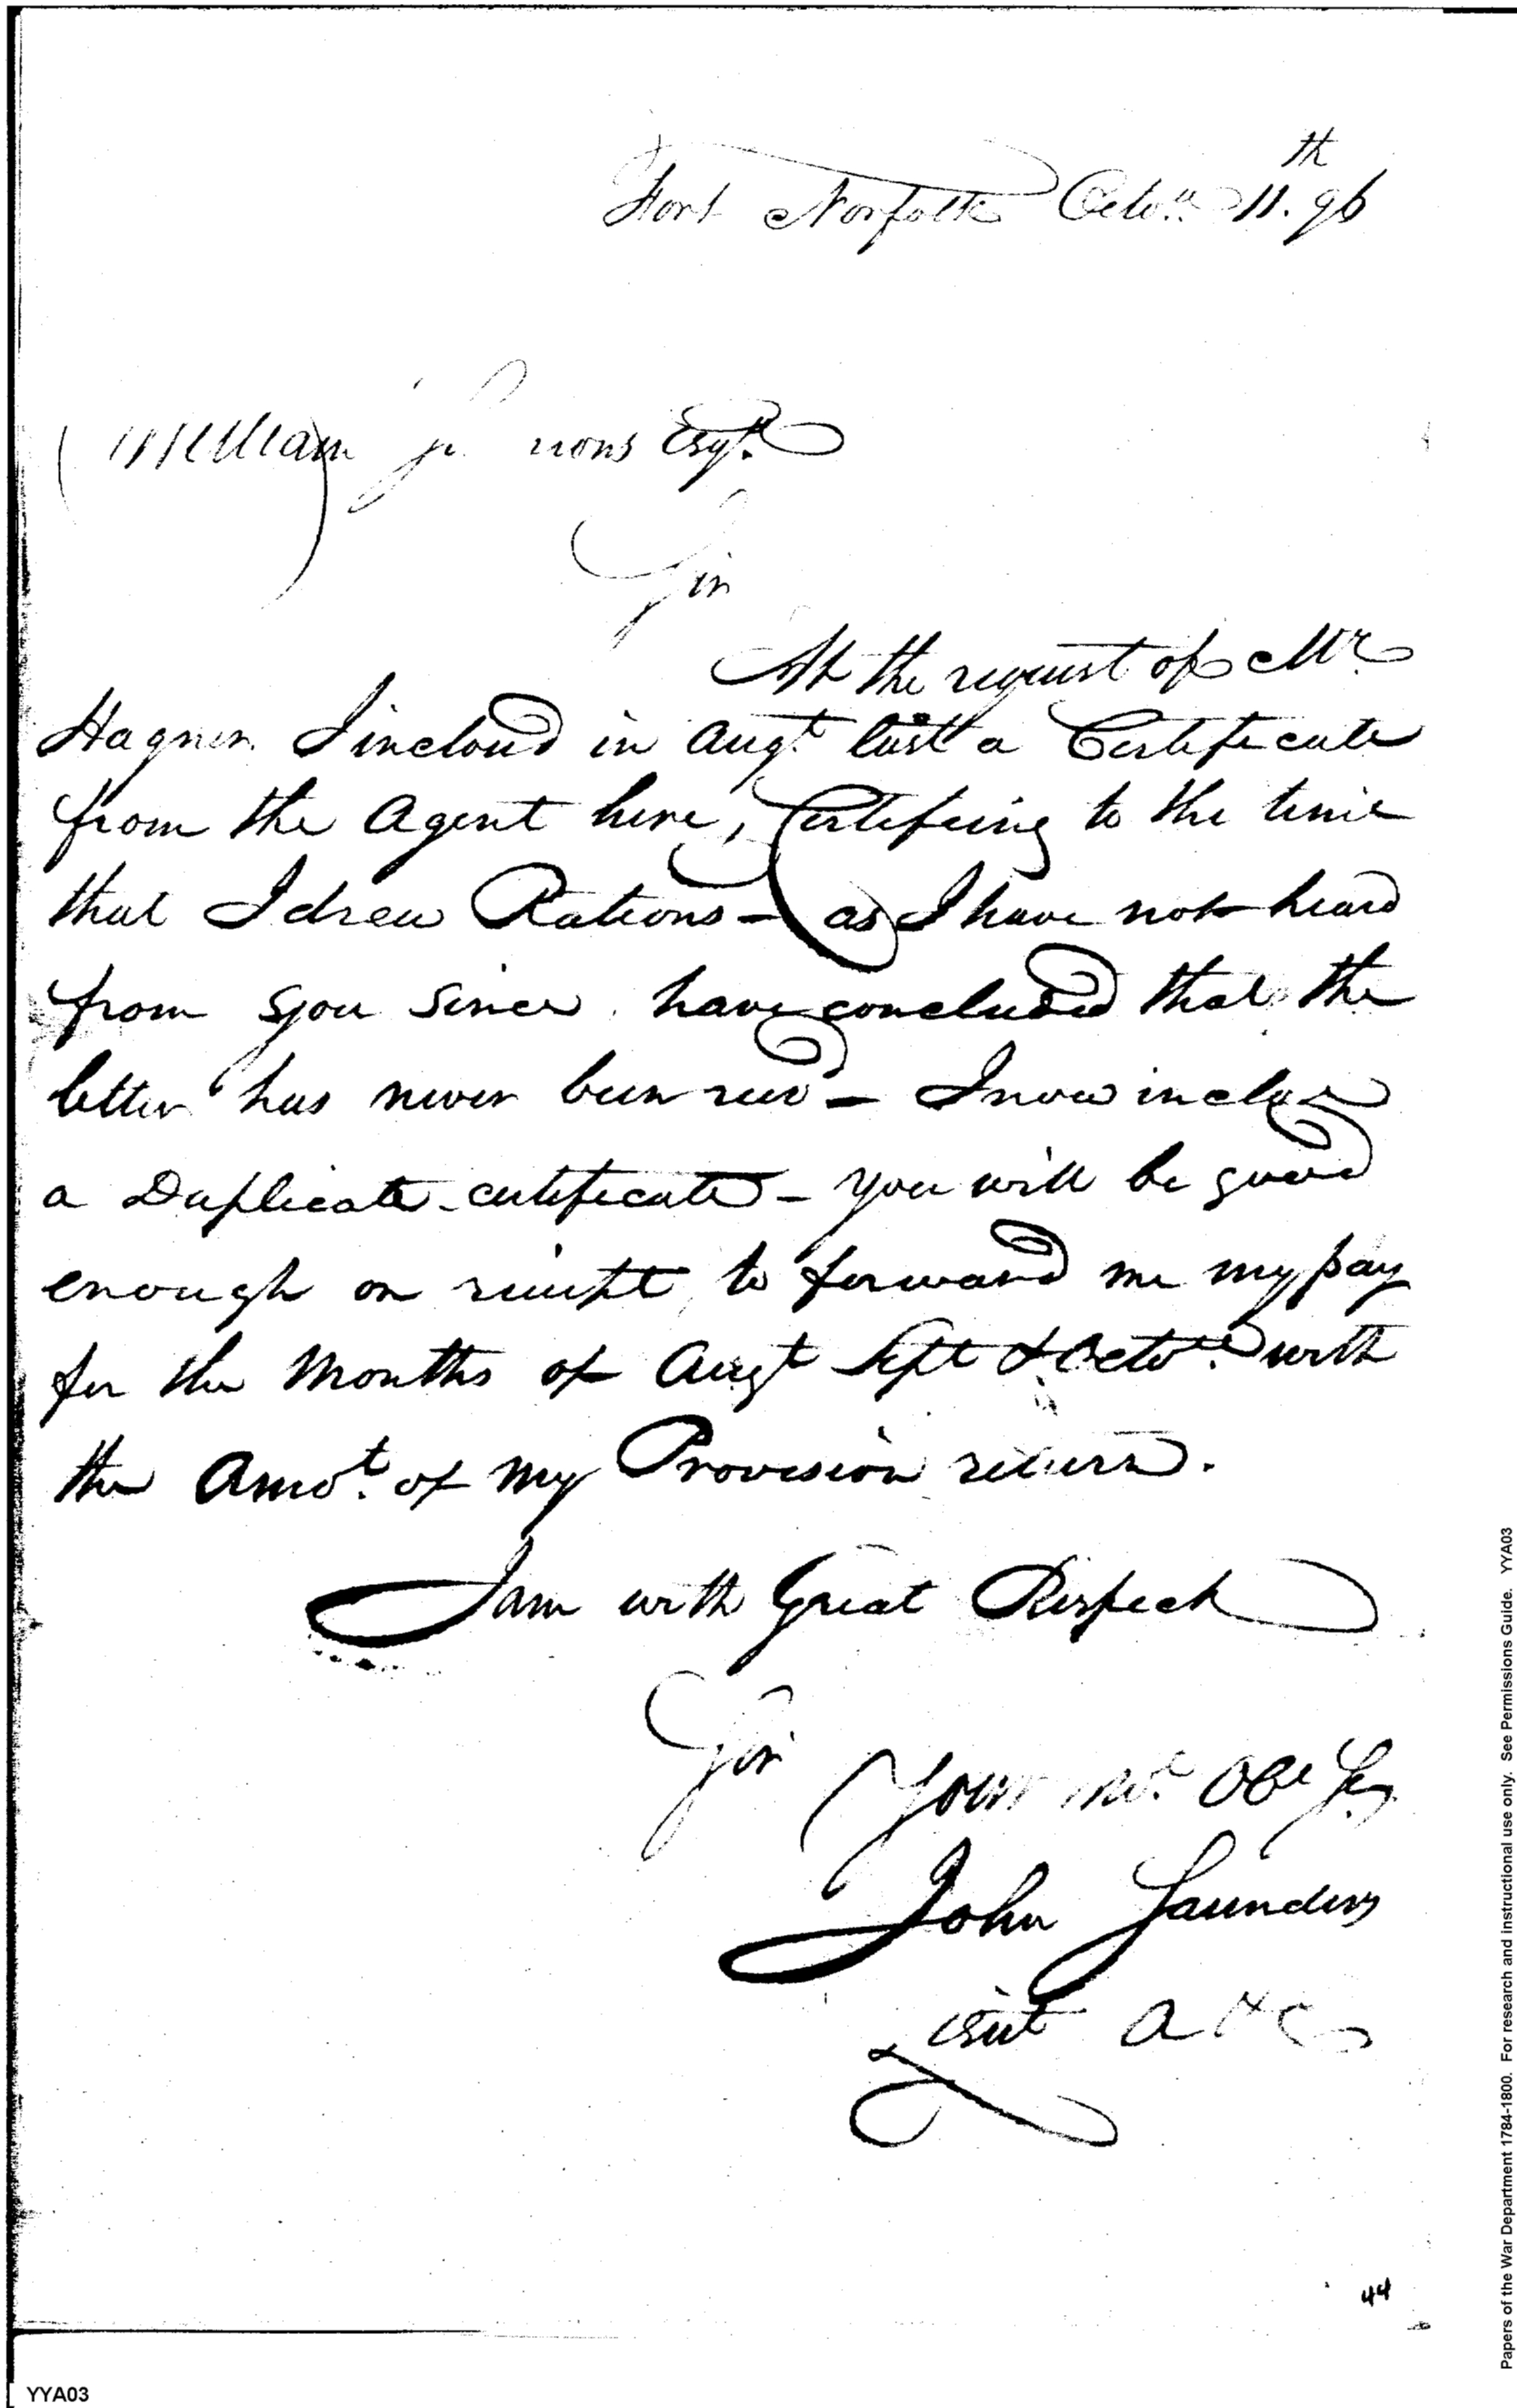 Fort Norfolk Octor. 11th. 96
William Simmons Esqr.
Sir
At the request of Mr
Hagner I inclousd in Augt. last a Certificate
from the Agent here, Certifeing to the time
that I drew Rations - as I have not heard
from you since have concluded that the
letter has never been recd - I now inclose
a Duplicate certificate - you will be good
enough on receipt to forward me my pay
for the Months of Augt Sept & Octor. with
the Amot. of my Provision return.
I am with Great Respect
Sir
Your mot. Obe Se
John Saunders
Lieut A & E
44
YYA03
Papers of the War Department 1784-1800. For research and instructional use only. See Permissions Guide. YYA03